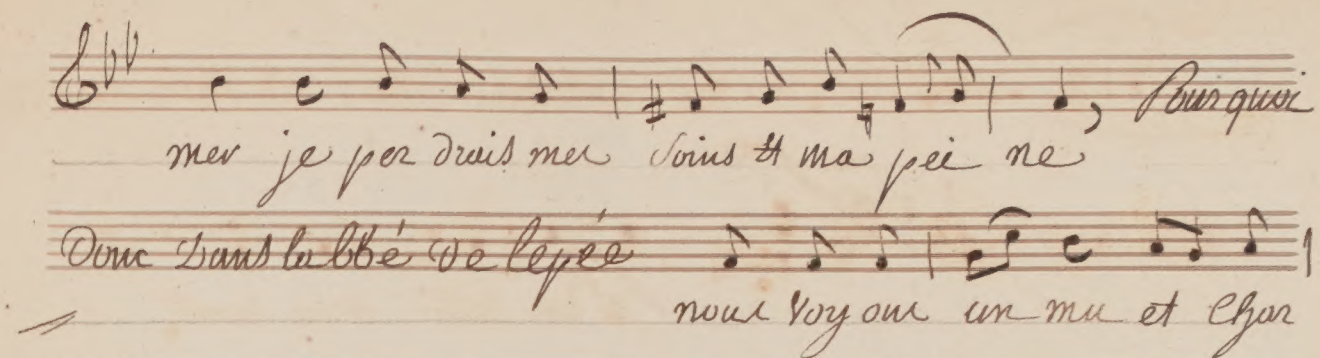 Pourquoi
mer je per drais mes soins et ma pei ne
Donc Dans labbé de lepée
nous voyons un mu et Char